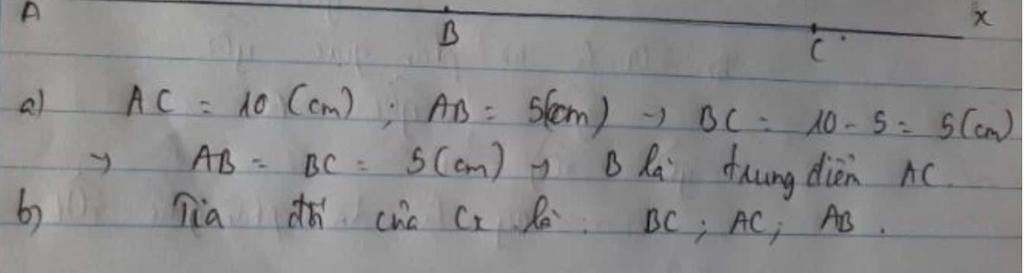 A B C x
a) AC = 10 (cm) ; AB = 5(cm) → BC = 10 - 5 = 5(cm)
→ AB = BC = 5(cm) → B là trung điểm AC.
b) Tia đối của Cx là : BC ; AC ; AB .